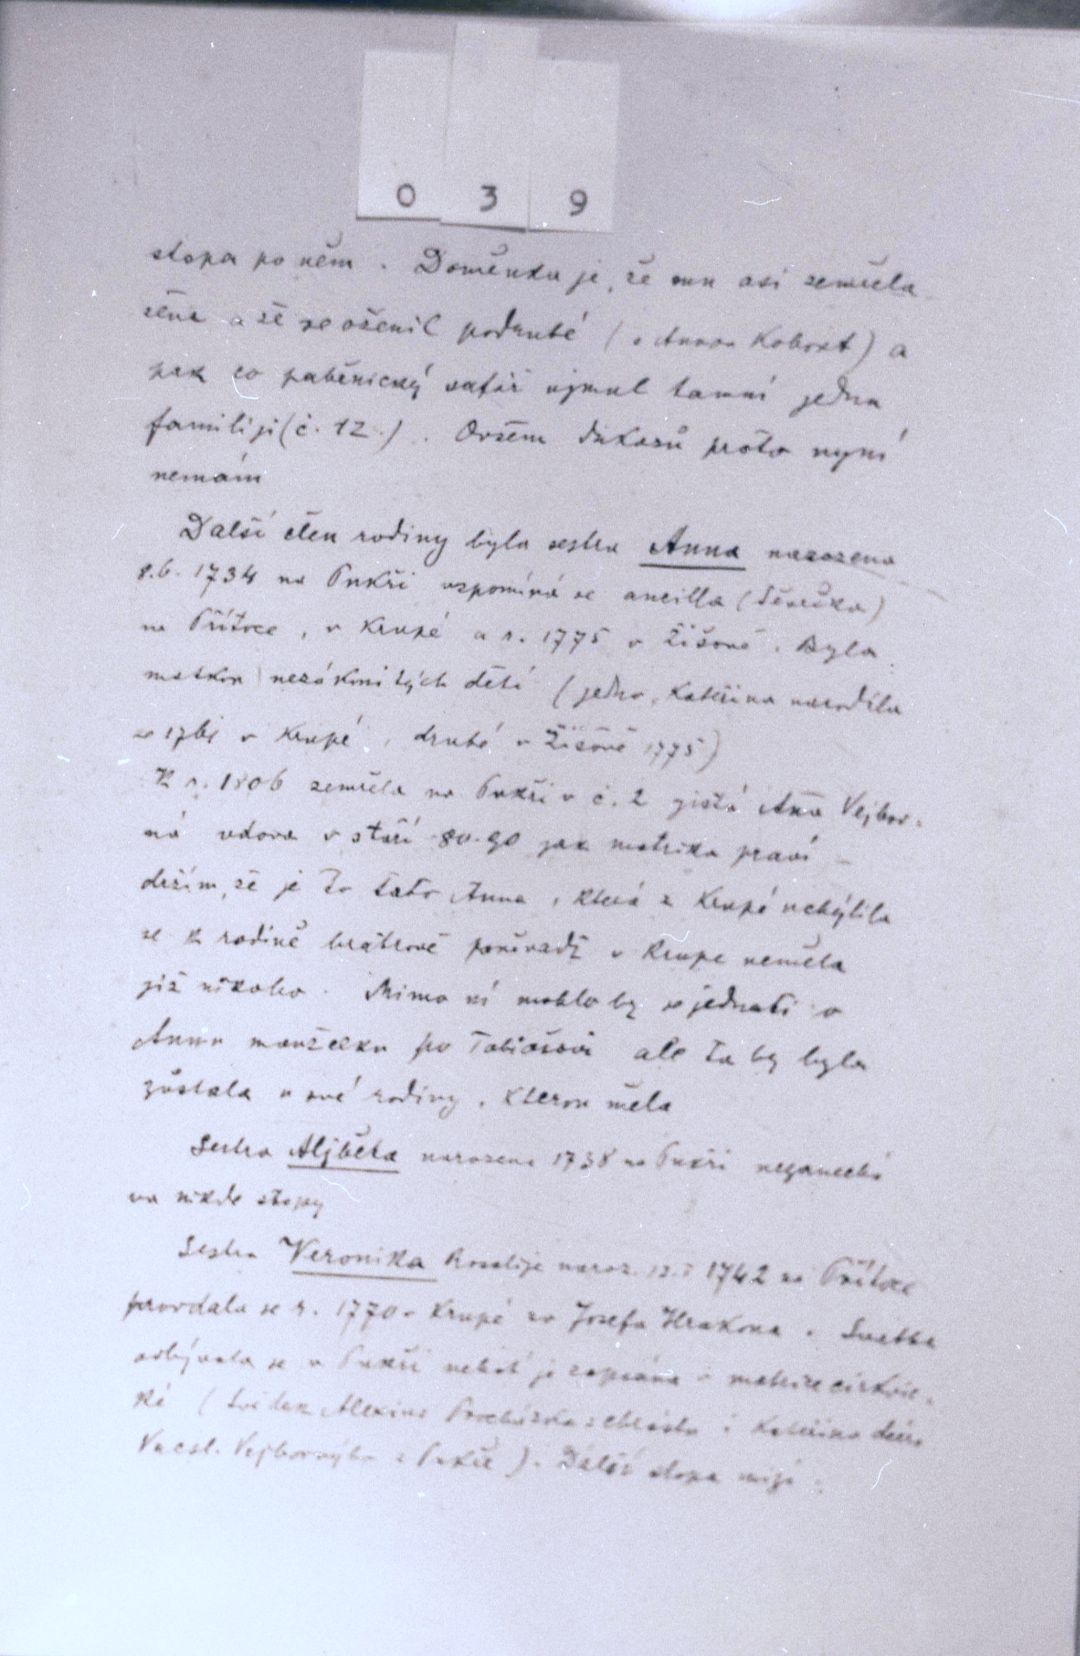 0 3 9
stopa po něm. Doměnka je, že mu asi zemřela
žena a že se oženil podruhé (s Annou Kobost) a
pak co paběnický šafář ujmul tamní jednu
familiji (č. 12.). Ovšem důkazů proto nyní
nemám
Další člen rodiny byla sestra Anna narozena
8.6. 1734 na Pukři vzpomíná se ancilla (děvečka)
na Přítoce, v Krupé a r. 1775 v Žišově. Byla
matkou nezákonitých dětí (jedno, Kateřina narodila
se v Krupé, druhé v Žišově 1775)
K r. 1806 zemřela na Pukři v č. 2 jistá Aña Vejbor-
ná vdova v stáří 80-90 jak matrika praví –
držím, že je to tato Anna, která z Krupé uchýlila
se k rodině bratrově poněvadž v Krupe neměla
již nikoho. Mimo ní mohlo by se jednati o
Annu manželku po Tobiášovi ale ta by byla
zůstala u své rodiny, kterou měla
Sestra Alžběta narozena 1738 na Pukři nezanechá
va nikde stopy
Sestra Veronika Rosalije naroz. 1742 na Přítoce
provdala se r. 1770 v Krupé za Josefa Hrakona. Svatba
odbývala se v Pukři neboť je zapsána v matrice církvic-
ké (svědek Alexius Procházka z Chlístu i Kateřina dcera
Vacsl. Vejborného z Pukře). Další stopa mizí.